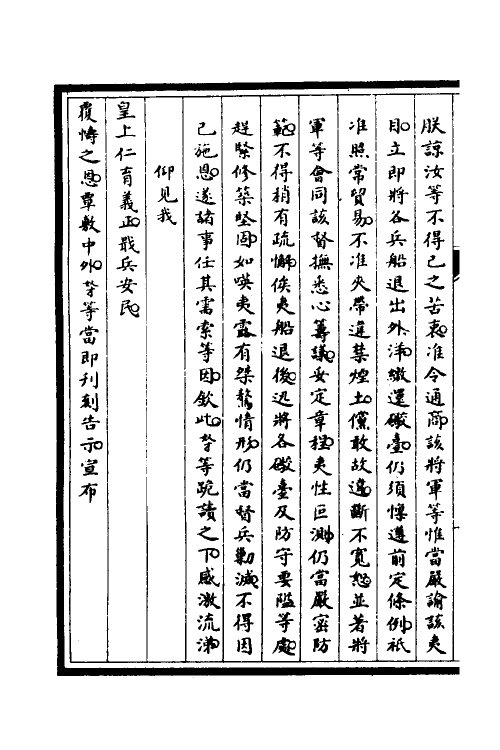 朕諒汝等不得已之苦衷准令通商該將軍等惟當嚴諭該夷
目立即將各兵船退出外洋繳還礮臺仍須懍遵前定條例祇
准照常貿易不准夾帶違禁煙土儻敢故違斷不寬恕並著將
軍等會同該督撫悉心籌議妥定章程夷性叵測仍當嚴密防
範不得稍有疏懈俟夷船退後迅將各礮臺及防守要隘等處
趕緊修築堅固如嘆夷露有桀驁情形仍當督兵勦滅不得因
已施恩遂諸事任其需索等因欽此弩等跪讀之下感激流涕
仰見我
皇上仁育義正戢兵安民
覆幬之恩覃敷中外弩等當即刊刻告示宣布